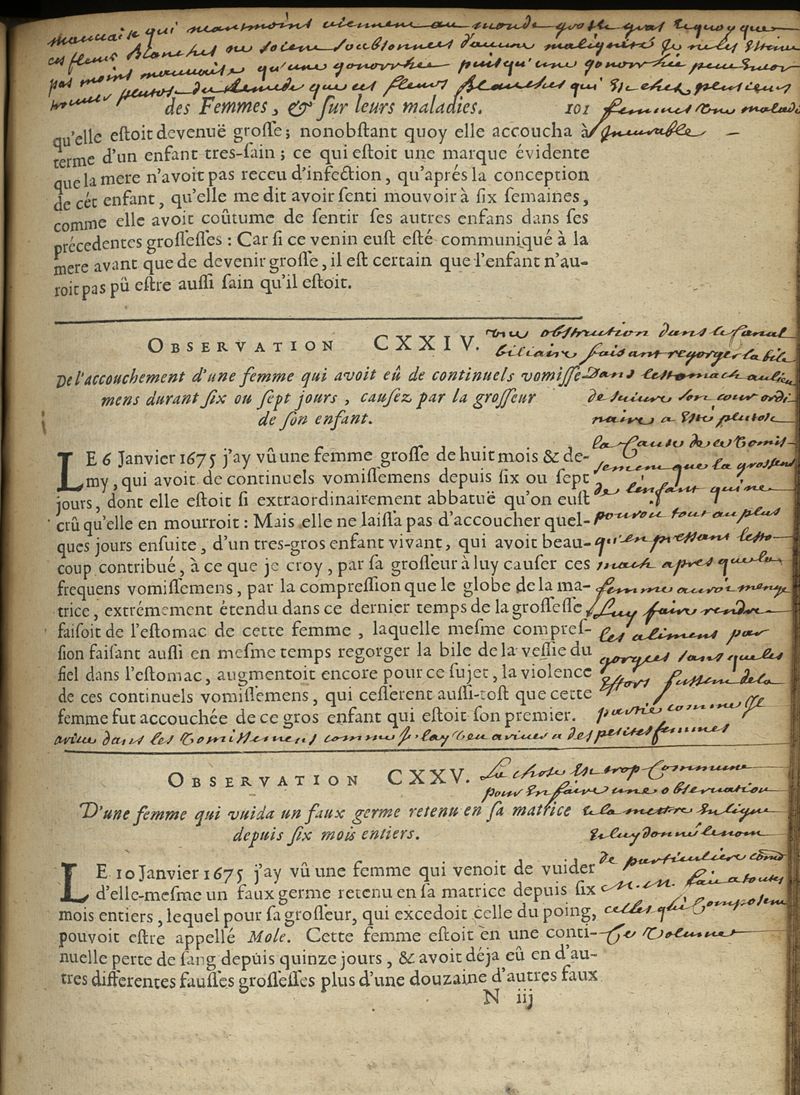 qui neantmoins viennent au monde
ces fleurs blanches ne soient soubsonnees d'aucune malignité
pas moins mauvaise qu'une gonorrhée puisqu'une gonorrhée peut
que ces fleurs blanches qui
des Femmes, & ſur leurs maladies. 101
femmes une maladi
incurable
qu'elle eſtoit devenuë groſſe; nonobſtant quoy elle accoucha à
terme d'un enfant tres-ſain; ce qui eſtoit une marque évidente
que la mere n'avoit pas receu d'infection, qu'aprés la conception
de cét enfant, qu'elle me dit avoir ſenti mouvoir à ſix ſemaines,
comme elle avoit coûtume de ſentir ſes autres enfans dans ſes
précedentes groſſeſſes: Car ſi ce venin euſt eſté communiqué à la
mere avant que de devenir groſſe, il eſt certain que l'enfant n'au-
roit pas pû eſtre auſſi ſain qu'il eſtoit.
OBSERVATION CXXIV.
De l'accouchement d'une femme qui avoit eû de continuels vomiſſe-
mens durant ſix ou ſept jours, cauſez par la groſſeur
de ſon enfant.
une obstruction dans le canal
biliaire faisant regorger la bile
dans lestomach au lieu
de suivre son cour ordi
naire a esté plutost
la cause de ce vomis
sement que la grosseur
de l'enfant qui ne
pouvoit tout au plus
qu'en pressant lesto
mach apres que la
femme auroit mangé
luy faire rendre
les aliment par
gorgees sans que les
effors fussent de la
partie comme je
LE 6 Janvier 1675 j'ay vû une femme groſſe de huit mois & de-
my, qui avoit de continuels vomiſſemens depuis ſix ou ſept
jours, dont elle eſtoit ſi extraordinairement abbatuë qu'on euſt
crû qu'elle en mourroit: Mais elle ne laiſſa pas d'accoucher quel-
ques jours enſuite, d'un tres-gros enfant vivant, qui avoit beau-
coup contribué, à ce que je croy, par ſa groſſeur à luy cauſer ces
frequens vomiſſemens, par la compreſſion que le globe de la ma-
trice, extrémement étendu dans ce dernier temps de la groſſeſſe,
faiſoit de l'eſtomac de cette femme, laquelle meſme compreſ-
ſion faiſant auſſi en meſme temps regorger la bile de la veſſie du
fiel dans l'eſtomac, augmentoit encore pour ce ſujet, la violence
de ces continuels vomiſſemens, qui ceſſerent auſſi-toſt que cette
femme fut accouchée de ce gros enfant qui eſtoit ſon premier.
dans les vomissemens comme j. lay veu a des petites femmes
OBSERVATION CXXV.
D'une femme qui vuida un faux germe retenu en ſa matrice
depuis ſix mois entiers.
La chose est trop commune
pour en faire une observation
luy donné le nom
de particuliere
LE 10 Janvier 1675 j'ay vû une femme qui venoit de vuider
d'elle-meſme un faux germe retenu en ſa matrice depuis ſix
mois entiers, lequel pour ſa groſſeur, qui excedoit celle du poing,
pouvoit eſtre appellé Mole. Cette femme eſtoit en une conti-
nuelle perte de ſang depuis quinze jours, & avoit déja eû en d'au-
tres differentes fauſſes groſſeſſes plus d'une douzaine d'autres faux
fait a toutes
celles qui composent
ce volume
N iij